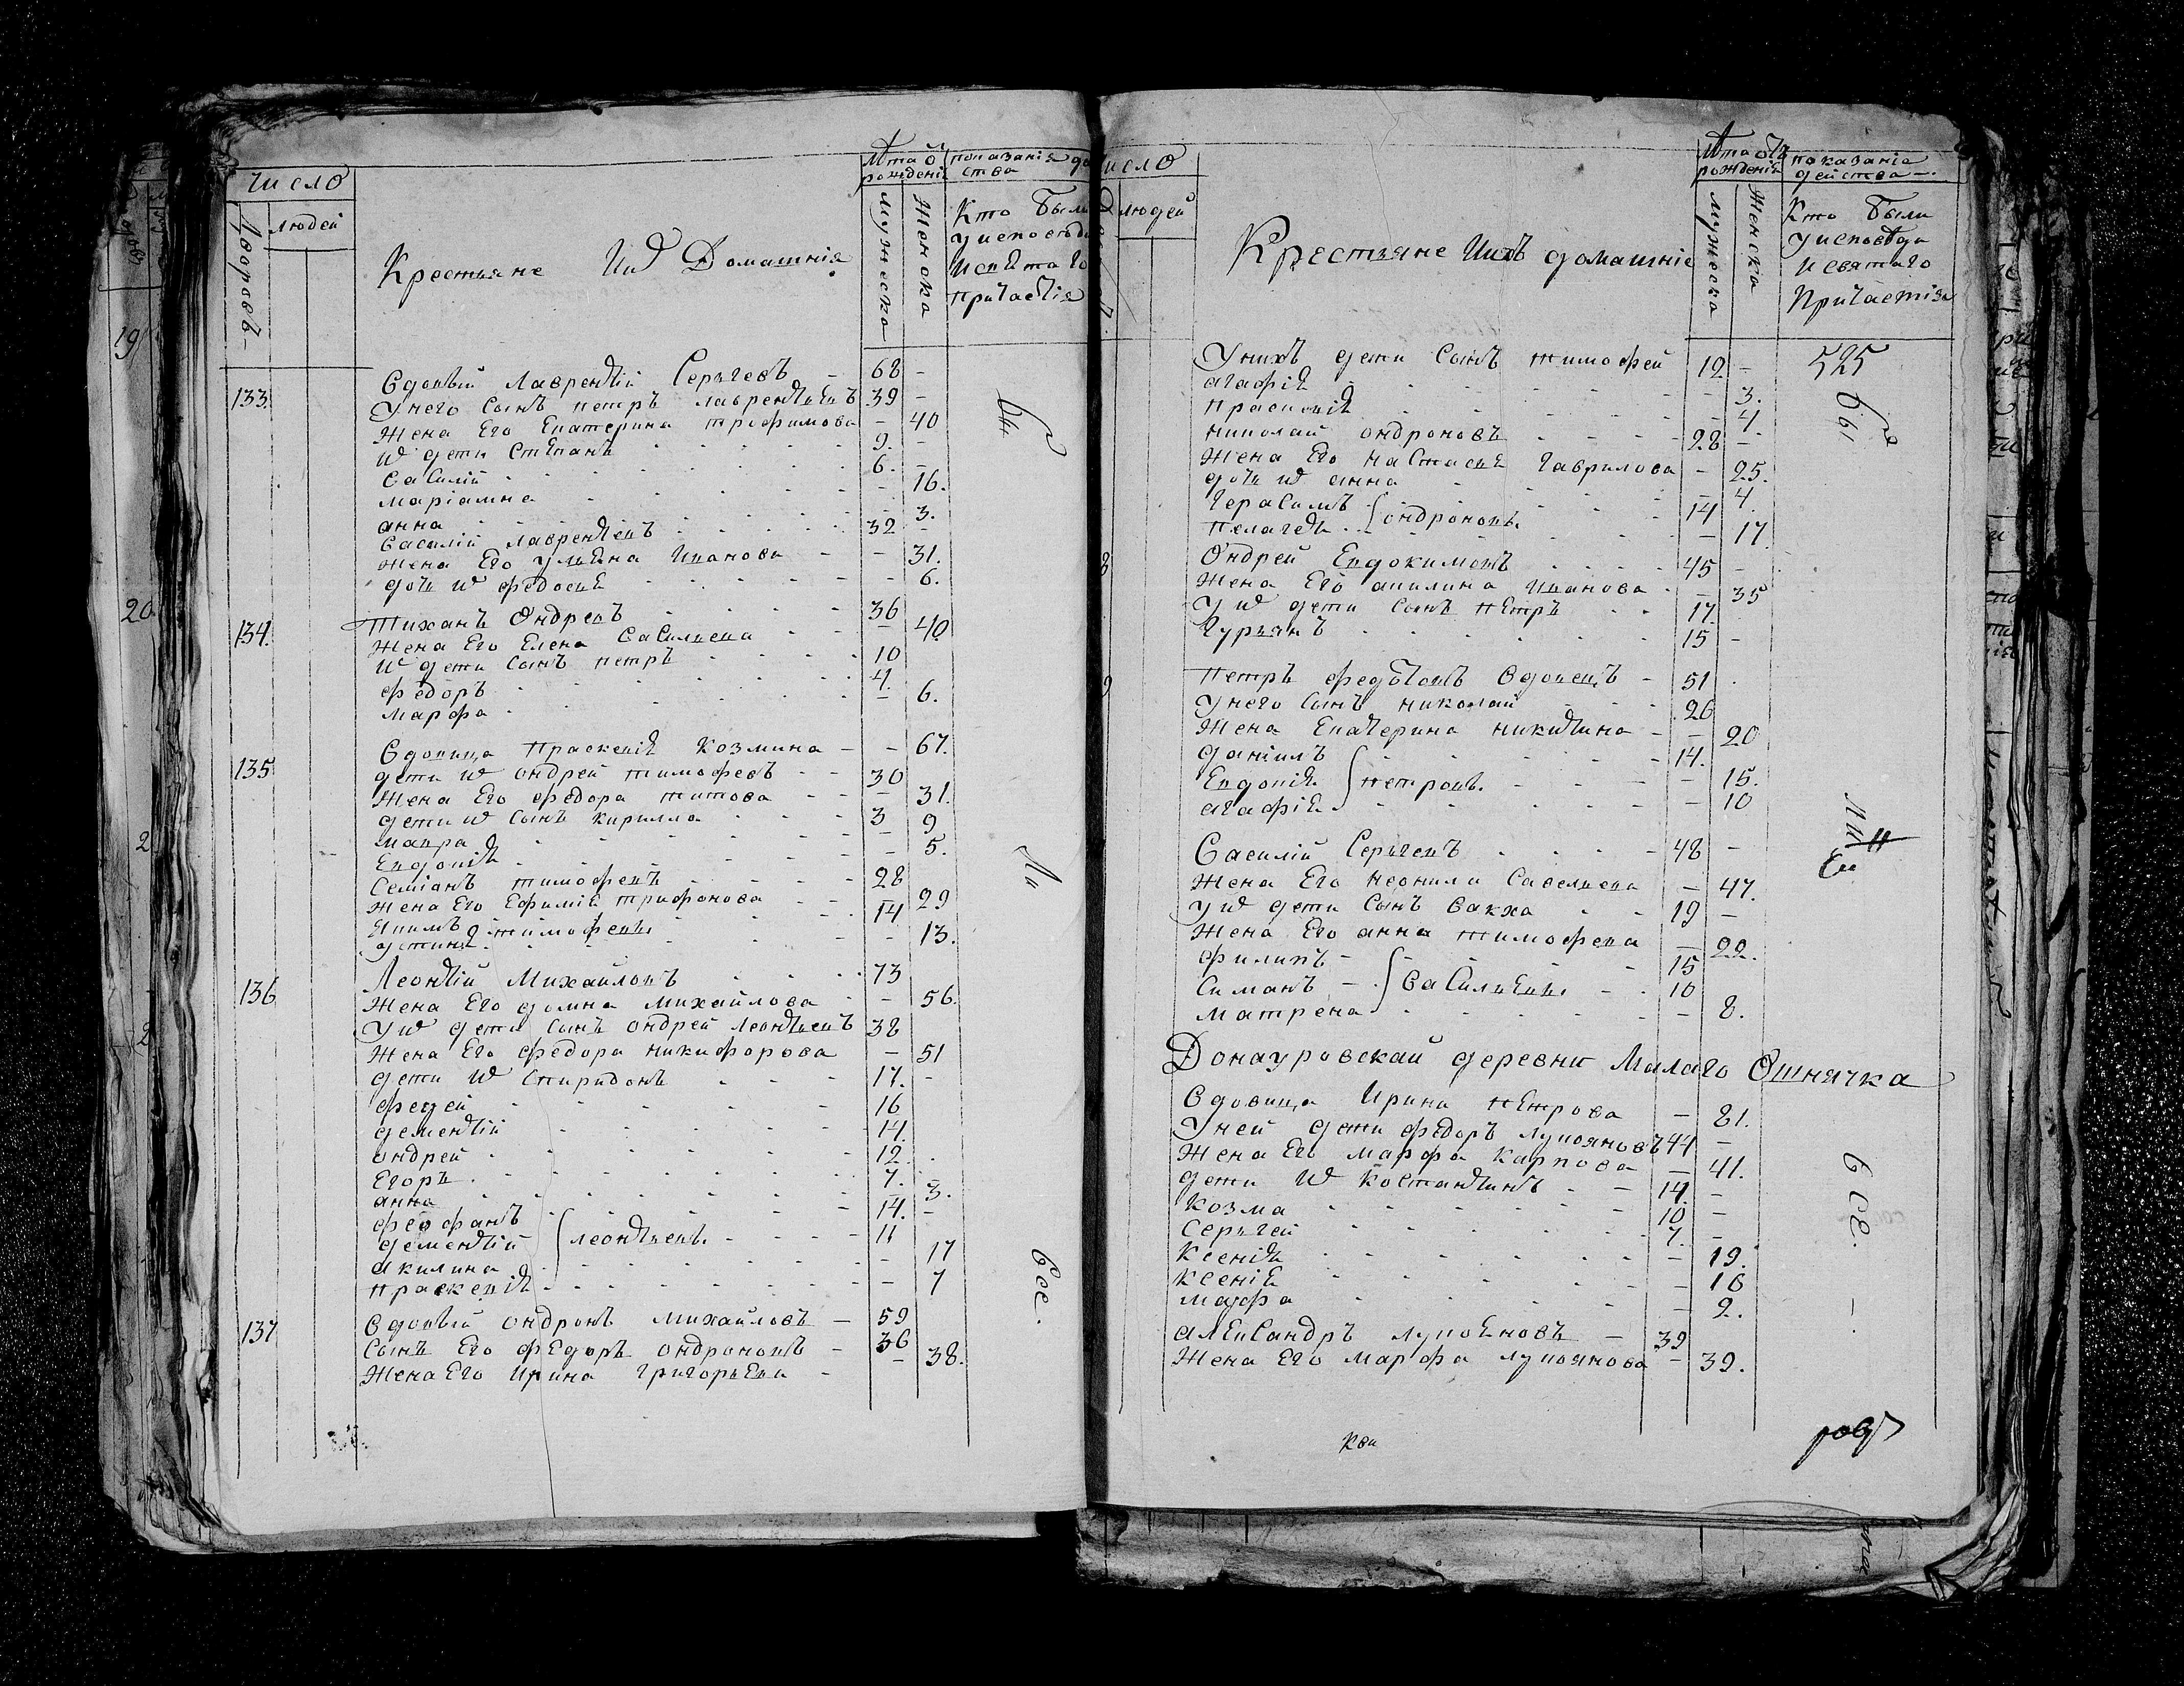 число
Дворовъ
людей
Крестьяне Ихъ Домашнія
Лѣта ѿ рожденія
мужеска
женска
показанія де
ства
Кто были
у исповѣди
и святаго
причастія
133. Вдовый Лаврентій Сергѣевъ – 68 –
Унего сынъ петръ лаврентьевъ 39 –
жена Его Екатерина трофимова – 40
их дети Степанъ 9. –
василій 6. –
маріамна – 16.
анна – 3.
василій лаврентьевъ 32 –
жена Его ульяна Иванова – 31.
дочь их федосья – 6.
134. Тиханъ Ондревъ 36
жена Его Елена васильева – 40
их дети сынъ петръ 10
федоръ 4.
марфа – 6.
135. Вдовица Праскевія козмина – – 67.
дети их ондрей тимофеевъ 30
жена Его федора титова – 31.
дети их сынъ кирилла 3
мавра – 9
Евдокія – 5.
Семіанъ тимофеевъ 28
жена Его Ефимія трифонова – 29
Якимъ 14
устинья тимофеевы – 13.
136 Леонтій Михайловъ 73
жена Его домна михайлова – 56.
У их дети сынъ ондрей леонтьевъ 38
жена Его федора никифорова – 51
дети их спиридонъ 17. –
фадей 16
дементій 14.
ондрей 12.
Егоръ 7. –
анна – 3.
феофанъ 14. –
дементій леонтьевы 11
акилина – 17
праскевія – 7
137 Вдовый ондронъ михайловъ – 59
сынъ Его федоръ ондроновъ – 36
жена Его ирина григорьева – – 38.
бы
ли
все.
число
людей
Крестьяне Ихъ домашніе
Лѣта отъ рожденія
мужеска
женска
показаніе
действа –.
Кто были
у исповѣди
и святаго
Причастія
Унихъ дети сынъ тимофей 12 – 525
агафія – 3.
праскевія – 4.
николай ондроновъ 28 –
жена Его настасья гаврилова – 25.
дочь их анна – 4.
герасимъ ондроновы 14
пелагея – 17
8 Ондрей Евдокимовъ 45 –
жена Его акилина иванова – 35
У их дети сынъ петръ 17.
Гурьянъ 15 –
9 Петръ федотовъ вдовецъ – 51
Унего сынъ николай 26
жена Екатерина никитина – – 20
данилъ 14.
Евдокія петровы. – 15.
агафія – 10
василій Сергѣевъ 48 –
жена Его неонила савельева – 47.
У их дети сынъ вакха 19 –
жена Его анна тимофева – 22.
филипъ – 15
симанъ – васильевы – 10
матрена – 8.
Донауровскай деревни Малаго Ошнячка
вдовица Ирина петрова – 81.
Уней дети федоръ лупояновъ 44 –
жена Его марфа карпова – 41.
дети их костантинъ – 14. –
козма 10 –
сергей 7. –
ксенія – 19.
ксенія – 16
марфа – 2.
александръ лупояновъ – 39
жена Его марфа лупоянова – 39.
бы
ли
все.